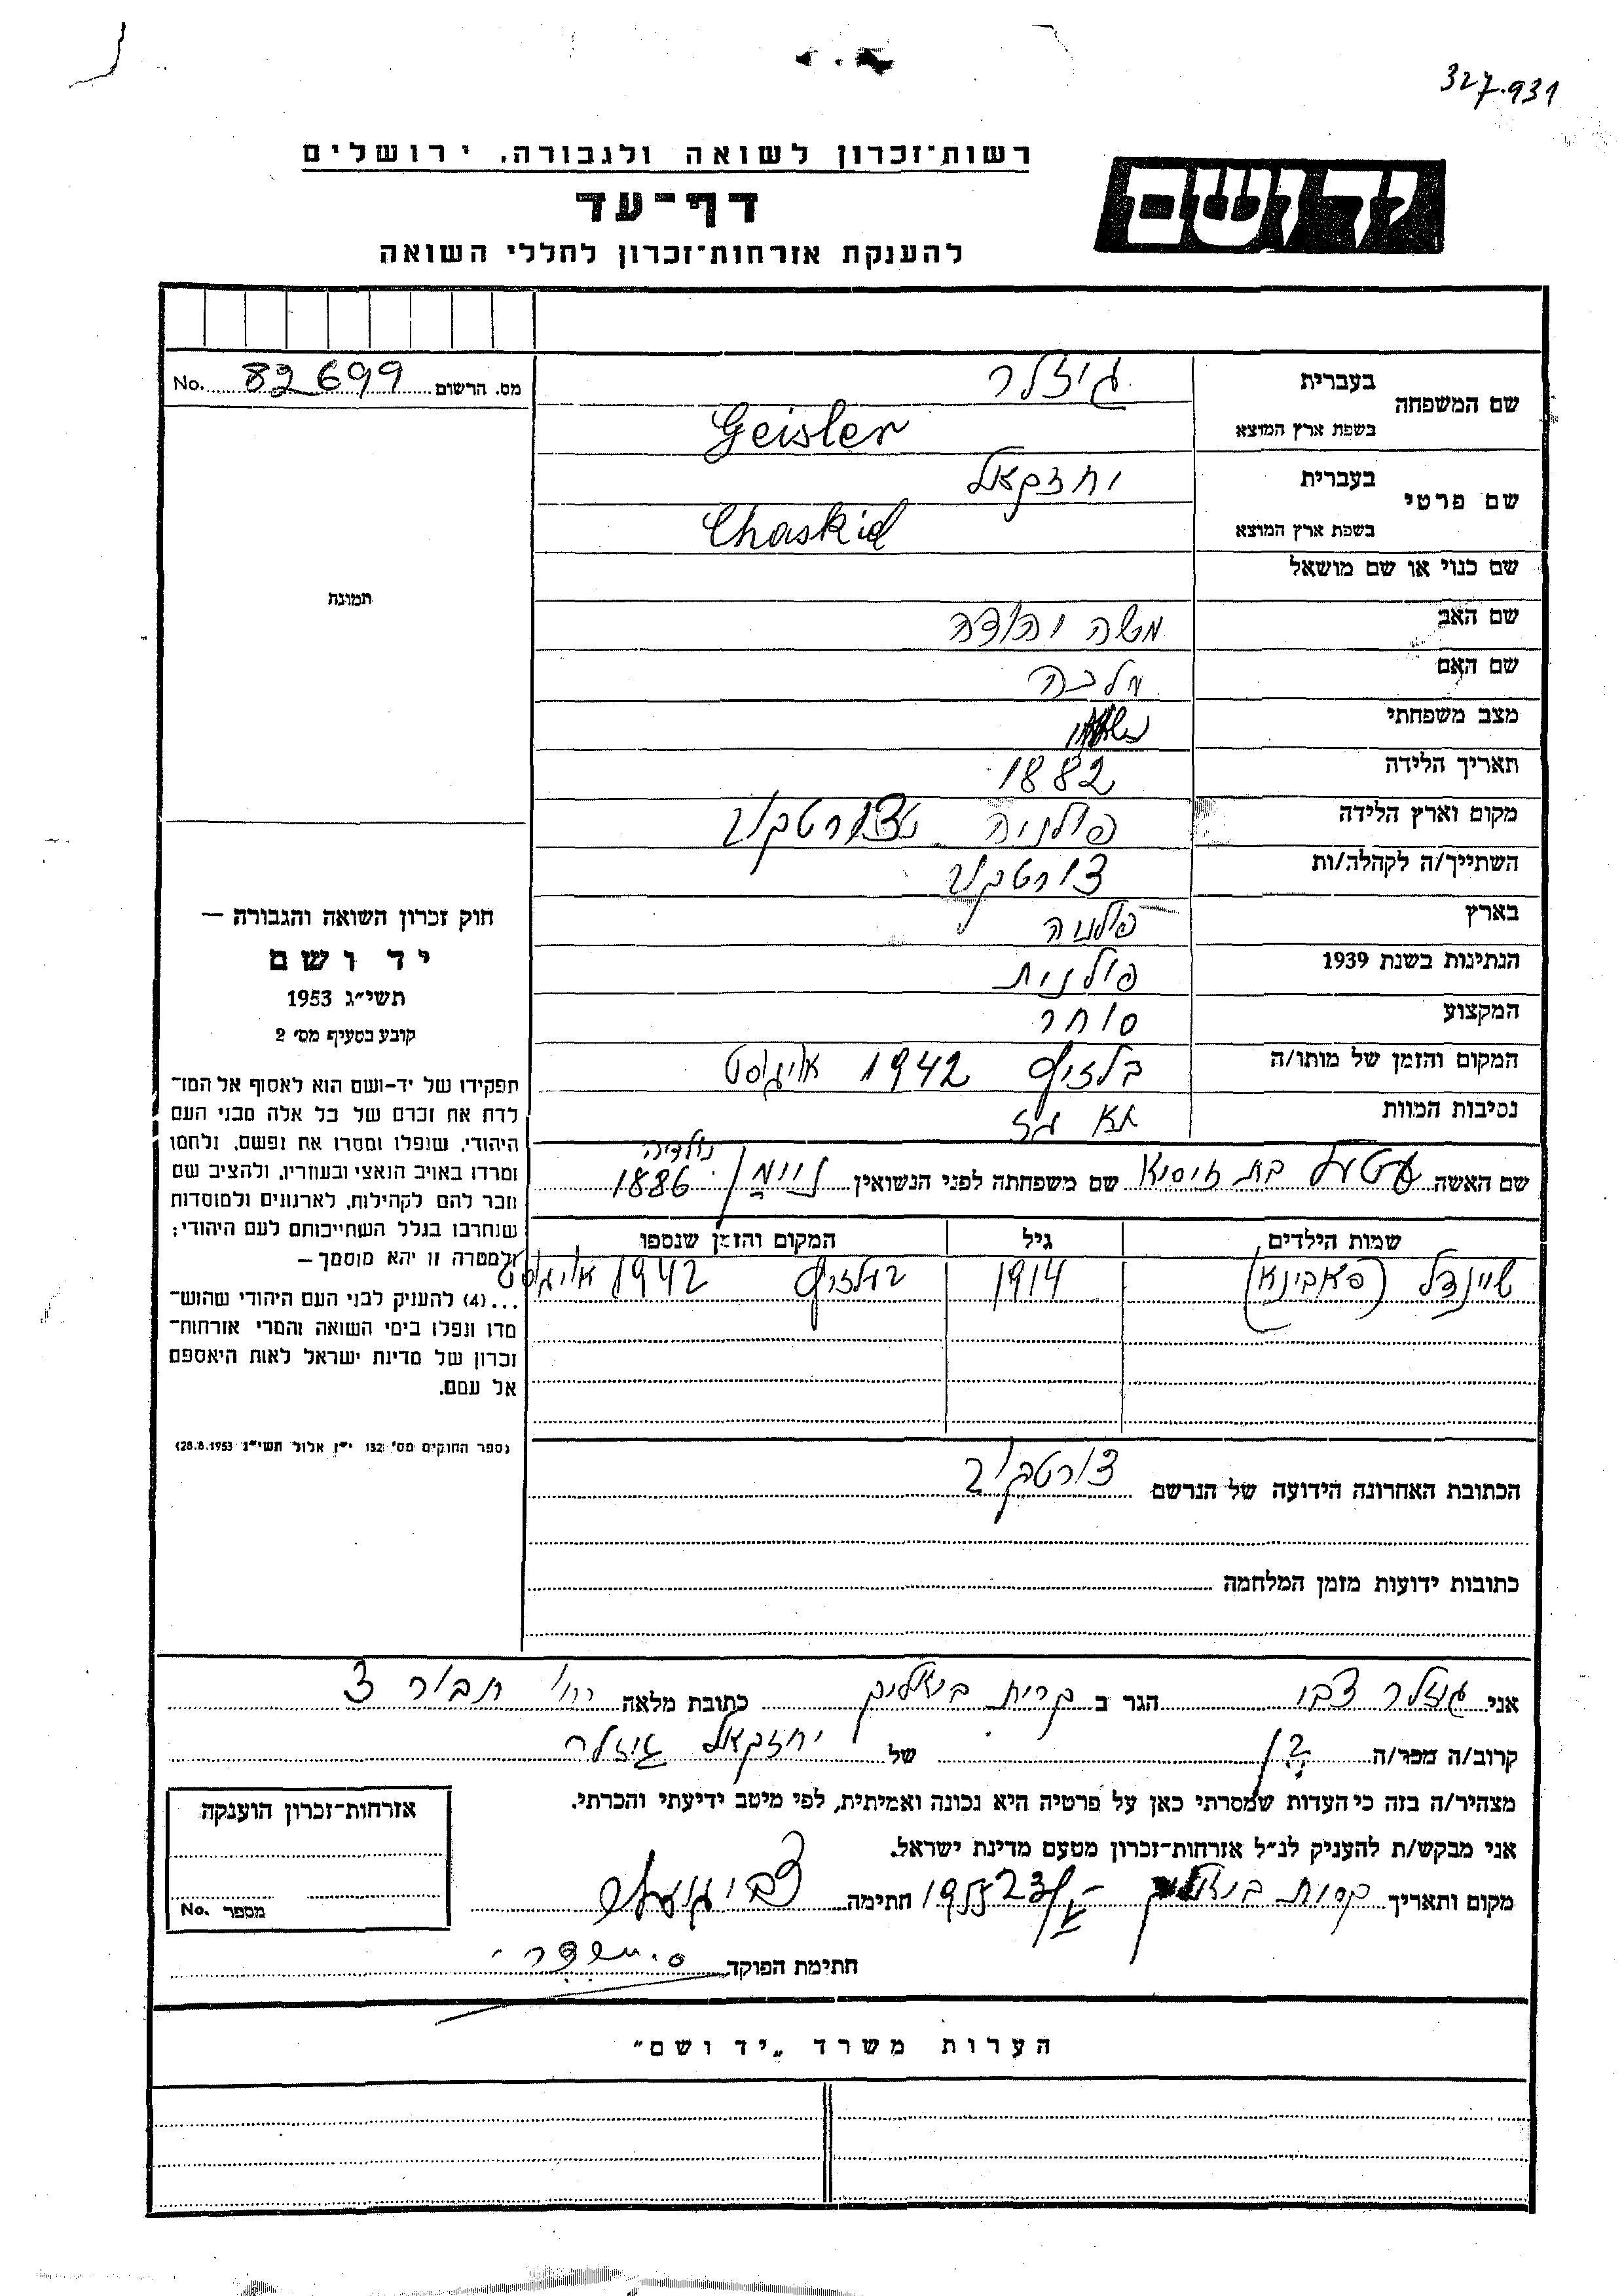 327.931
ידושם
רשות־זכרון לשואה ולגבורה, ירושלים
דף־עד
להענקת אזרחות־זכרון לחללי השואה
מס. הרשום 82699 No.
תמונה
שם המשפחה בעברית גיזלר
בשפת ארץ המוצא Geisler
שם פרטי בעברית יחזקאל
בשפת ארץ המוצא Chaskiel
שם כנוי או שם מושאל
שם האב משה יהודה
שם האם מלכה
מצב משפחתי
תאריך הלידה 1882
מקום וארץ הלידה פולניה צ'ורטקוב
השתייך/ה לקהלה/ות צ'ורטקוב
בארץ פולניה
הנתינות בשנת 1939 פולנית
המקצוע סוחר
המקום והזמן של מותו/ה בלזיץ 1942 אויגוסט
נסיבות המוות תא גז
שם האשה עטעל בת זיסיא שם משפחתה לפני הנשואין נוימן נולדיה 1886
שמות הילדים גיל המקום והזמן שנספו
שיינדל (סאבינא) 1914 בלזיץ 1942 אויגוסט
הכתובת האחרונה הידועה של הנרשם צ'ורטקוב
כתובות ידועות מזמן המלחמה
חוק זכרון השואה והגבורה —
יד ושם
תשי״ג 1953
קובע בסעיף מס׳ 2
תפקידו של יד-ושם הוא לאסוף אל המו־
לדת את זכרם של כל אלה מבני העם
היהודי, שנפלו ומסרו את נפשם, נלחמו
ומרדו באויב הנאצי ובעוזריו, ולהציב שם
וזכר להם לקהילות, לארגונים ולמוסדות
שנחרבו בגלל השתייכותם לעם היהודי;
ולמטרה זו יהא מוסמך —
...(4) להעניק לבני העם היהודי שהוש־
מדו ונפלו בימי השואה והמרי אזרחות־
זכרון של מדינת ישראל לאות היאספם
אל עמם.
(ספר החוקים מס׳ 132 י״ז אלול תשי״ג 28.8.1953)
אני גיזלר צבי הגר ב קרית ביאליק כתובת מלאה רח' תבור 3
קרוב/ה מכר/ה בן של יחזקאל גיזלר
מצהיר/ה בזה כי העדות שמסרתי כאן על פרטיה היא נכונה ואמיתית, לפי מיטב ידיעתי והכרתי.
אני מבקש/ת להעניק לנ״ל אזרחות־זכרון מטעם מדינת ישראל.
מקום ותאריך קרית ביאליק 23/ חתימה צבי
חתימת הפוקד
אזרחות־זכרון הוענקה
מספר No.
הערות משרד „יד ושם״